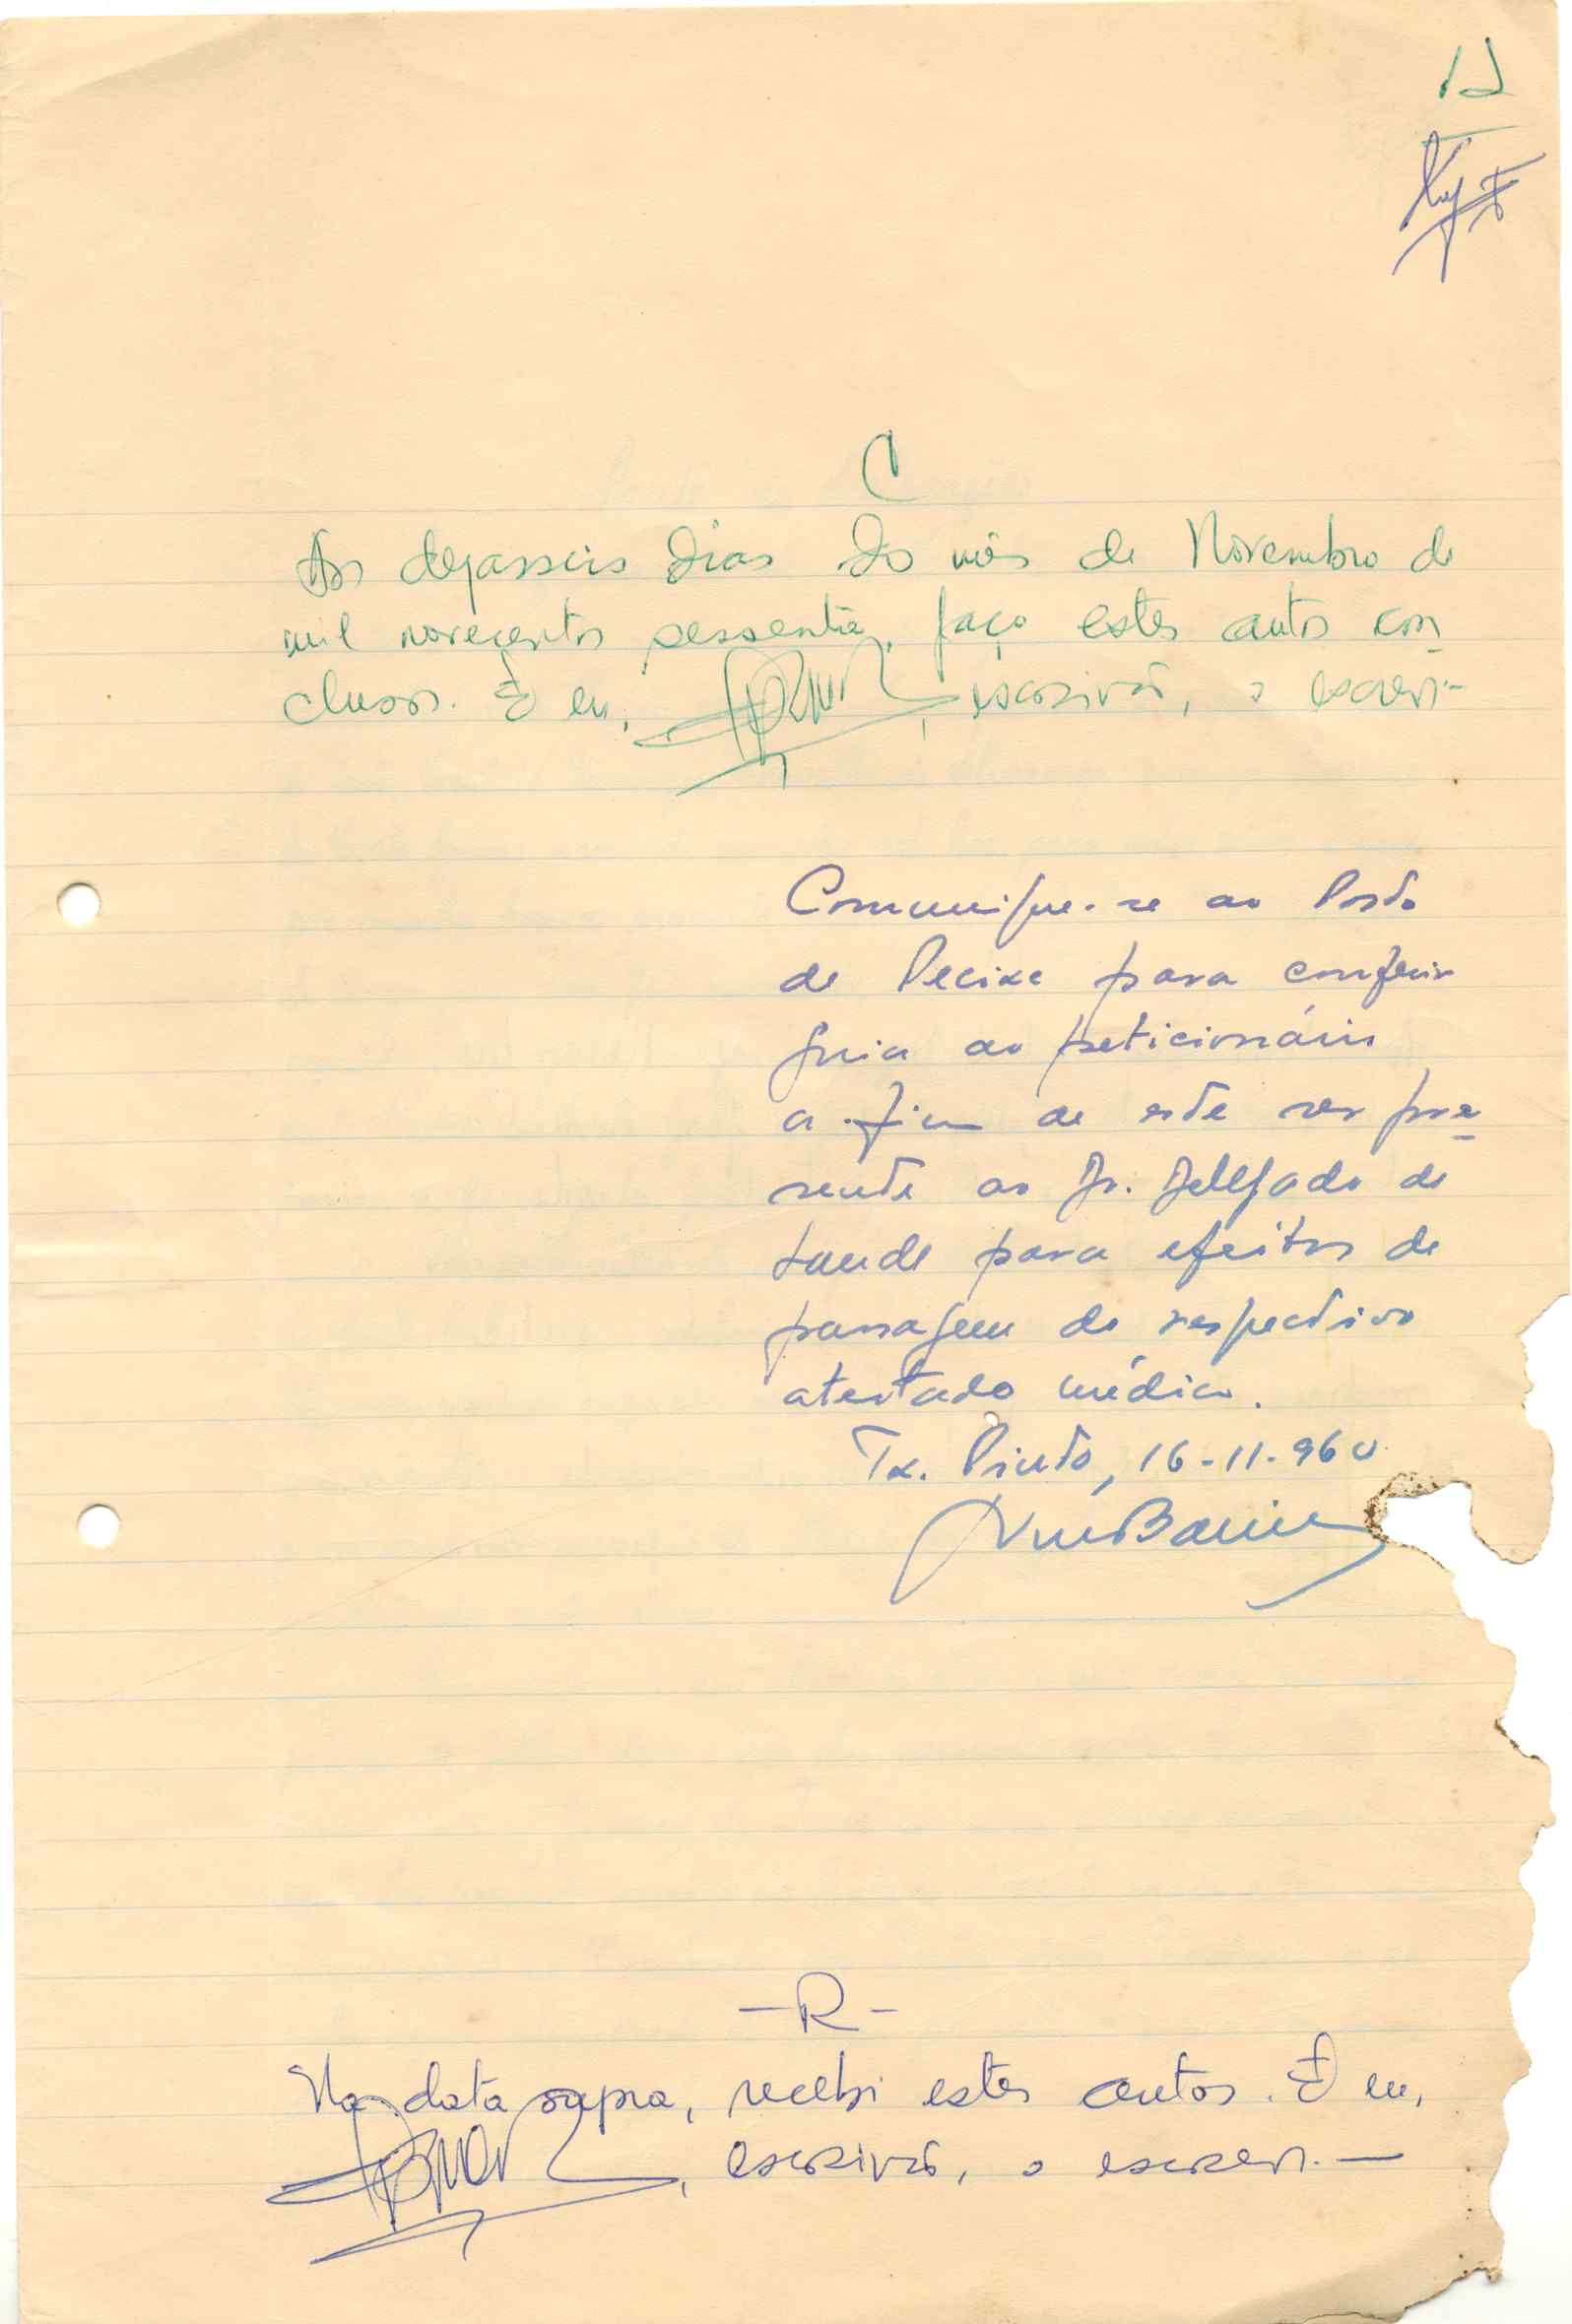 12
C
Aos dezasseis dias do mês de Novembro de
mil novecentos sessenta, faço estes autos con-
clusos. E eu, , escrivão, o escrevi.-
Comunique-se ao Posto
de Pecixe para conferir
guia ao peticionário
a fim de este ser pre-
sente ao Dr. Delegado de
Saude para efeitos de
passagem do respectivo
atestado médico.
Tx. Pinto, 16-11-960
-R-
Na data supra, recebi estes autos. E eu,
, escrivão, o escrevi.—